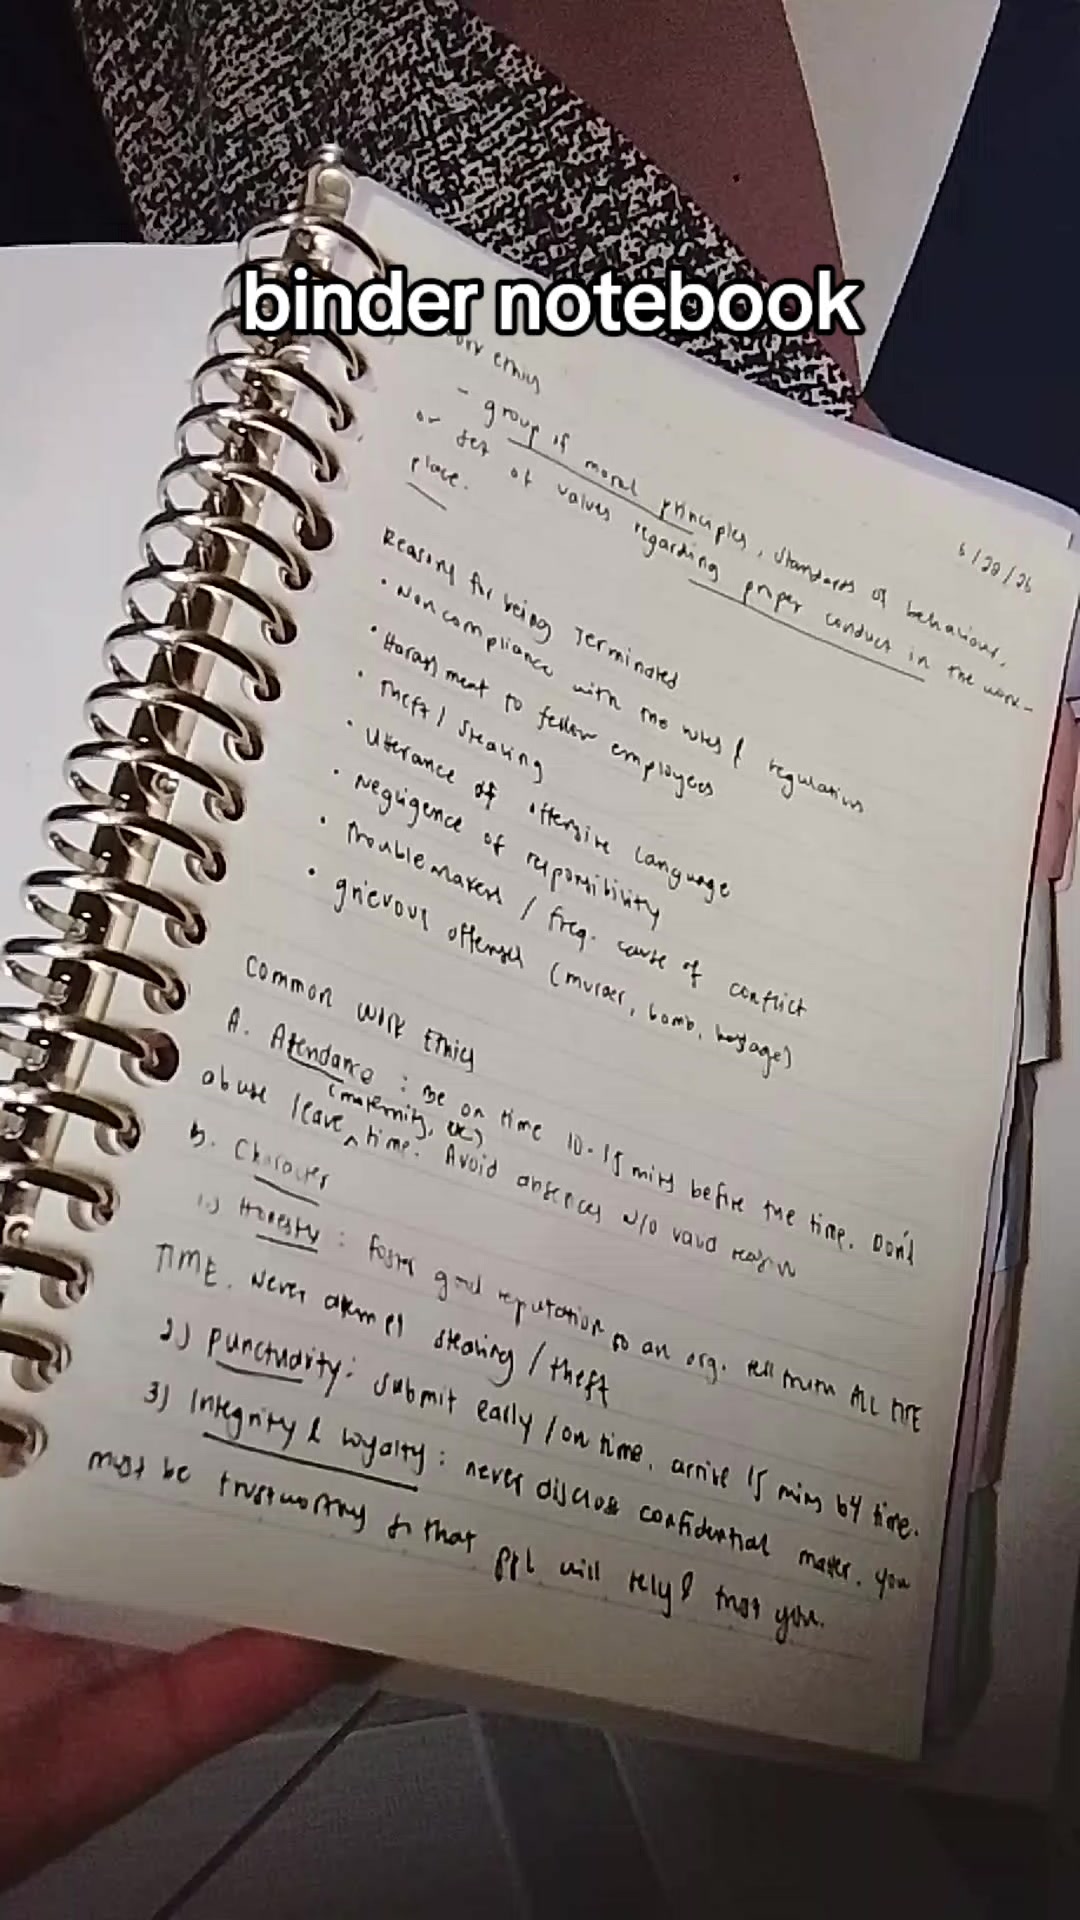 binder notebook
work ethics
6/20/26
- group of moral principles, standards of behaviour,
or set of values regarding proper conduct in the work-
place.
Reasons for being terminated
• Noncompliance with the rules & regulations
• Harassment to fellow employees
• Theft / Stealing
• Utterance of offensive language
• Negligence of responsibility
• Troublemakers / freq. cause of conflict
• grievous offenses (murder, bomb, hostage)
Common Work Ethics
A. Attendance : Be on time 10-15 mins before the time. Don't
abuse leave (maternity, etc) time. Avoid absences w/o valid reason
B. Character
1.) Honesty : foster good reputation to an org. tell truth ALL THE
TIME. Never attempt stealing / theft
2.) Punctuality : submit early / on time. arrive 15 mins b4 time.
3) Integrity & loyalty : never disclose confidential matter. you
must be trustworthy so that ppl will rely & trust you.